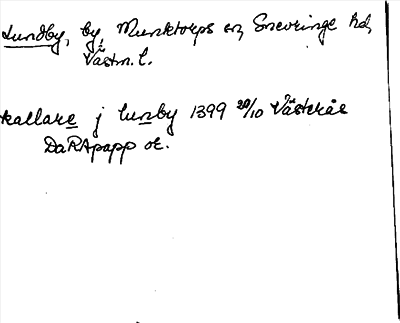 Lundby, by, Munktorps sn, Snevringe hd,
Västm. l.
kallare j lunby 1399 20/10 Västerås
DaRApapp or.